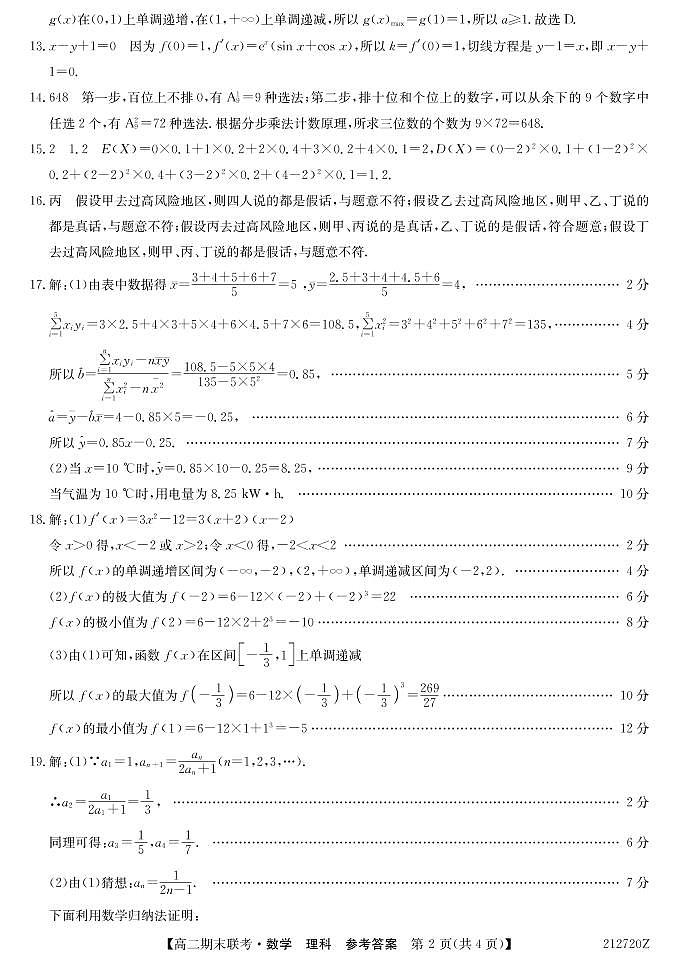 g(x)在(0,1)上单调递增,在(1,+∞)上单调递减,所以 g(x)max=g(1)=1,所以 a≥1. 故选 D.
13. x-y+1=0　因为 f(0)=1,f′(x)=eˣ(sin x+cos x),所以 k=f′(0)=1,切线方程是 y-1=x,即 x-y+
1=0.
14. 648　第一步,百位上不排 0,有 A₉¹=9 种选法;第二步,排十位和个位上的数字,可以从余下的 9 个数字中
任选 2 个,有 A₉²=72 种选法. 根据分步乘法计数原理,所求三位数的个数为 9×72=648.
15. 2　1.2　E(X)=0×0.1+1×0.2+2×0.4+3×0.2+4×0.1=2,D(X)=(0-2)²×0.1+(1-2)²×
0.2+(2-2)²×0.4+(3-2)²×0.2+(4-2)²×0.1=1.2.
16. 丙　假设甲去过高风险地区,则四人说的都是假话,与题意不符;假设乙去过高风险地区,则甲、乙、丁说的
都是真话,与题意不符;假设丙去过高风险地区,则甲、丙说的是真话,乙、丁说的是假话,符合题意;假设丁
去过高风险地区,则甲、丙、丁说的都是假话,与题意不符.
17. 解:(1)由表中数据得 x̄=(3+4+5+6+7)/5=5 ,ȳ=(2.5+3+4+4.5+6)/5=4, …… 2 分
∑ᵢ₌₁⁵xᵢyᵢ=3×2.5+4×3+5×4+6×4.5+7×6=108.5,∑ᵢ₌₁⁵xᵢ²=3²+4²+5²+6²+7²=135, …… 4 分
所以 b̂=(∑ᵢ₌₁ⁿxᵢyᵢ-nx̄ȳ)/(∑ᵢ₌₁ⁿxᵢ²-nx̄²)=(108.5-5×5×4)/(135-5×5²)=0.85, …… 5 分
â=ȳ-b̂x̄=4-0.85×5=-0.25, …… 6 分
所以 ŷ=0.85x-0.25. …… 7 分
(2)当 x=10 ℃时,ŷ=0.85×10-0.25=8.25, …… 9 分
当气温为 10 ℃时,用电量为 8.25 kW·h. …… 10 分
18. 解:(1)f′(x)=3x²-12=3(x+2)(x-2)
令 x>0 得,x<-2 或 x>2;令 x<0 得,-2<x<2 …… 2 分
所以 f(x)的单调递增区间为(-∞,-2),(2,+∞),单调递减区间为(-2,2). …… 4 分
(2)f(x)的极大值为 f(-2)=6-12×(-2)+(-2)³=22 …… 6 分
f(x)的极小值为 f(2)=6-12×2+2³=-10 …… 8 分
(3)由(1)可知,函数 f(x)在区间[-1/3,1]上单调递减
所以 f(x)的最大值为 f(-1/3)=6-12×(-1/3)+(-1/3)³=269/27 …… 10 分
f(x)的最小值为 f(1)=6-12×1+1³=-5 …… 12 分
19. 解:(1)∵a₁=1,aₙ₊₁=aₙ/(2aₙ+1)(n=1,2,3,…).
∴a₂=a₁/(2a₁+1)=1/3, …… 2 分
同理可得:a₃=1/5,a₄=1/7. …… 6 分
(2)由(1)猜想:aₙ=1/(2n-1). …… 7 分
下面利用数学归纳法证明:
【高二期末联考·数学　理科　参考答案　第 2 页(共 4 页)】　212720Z